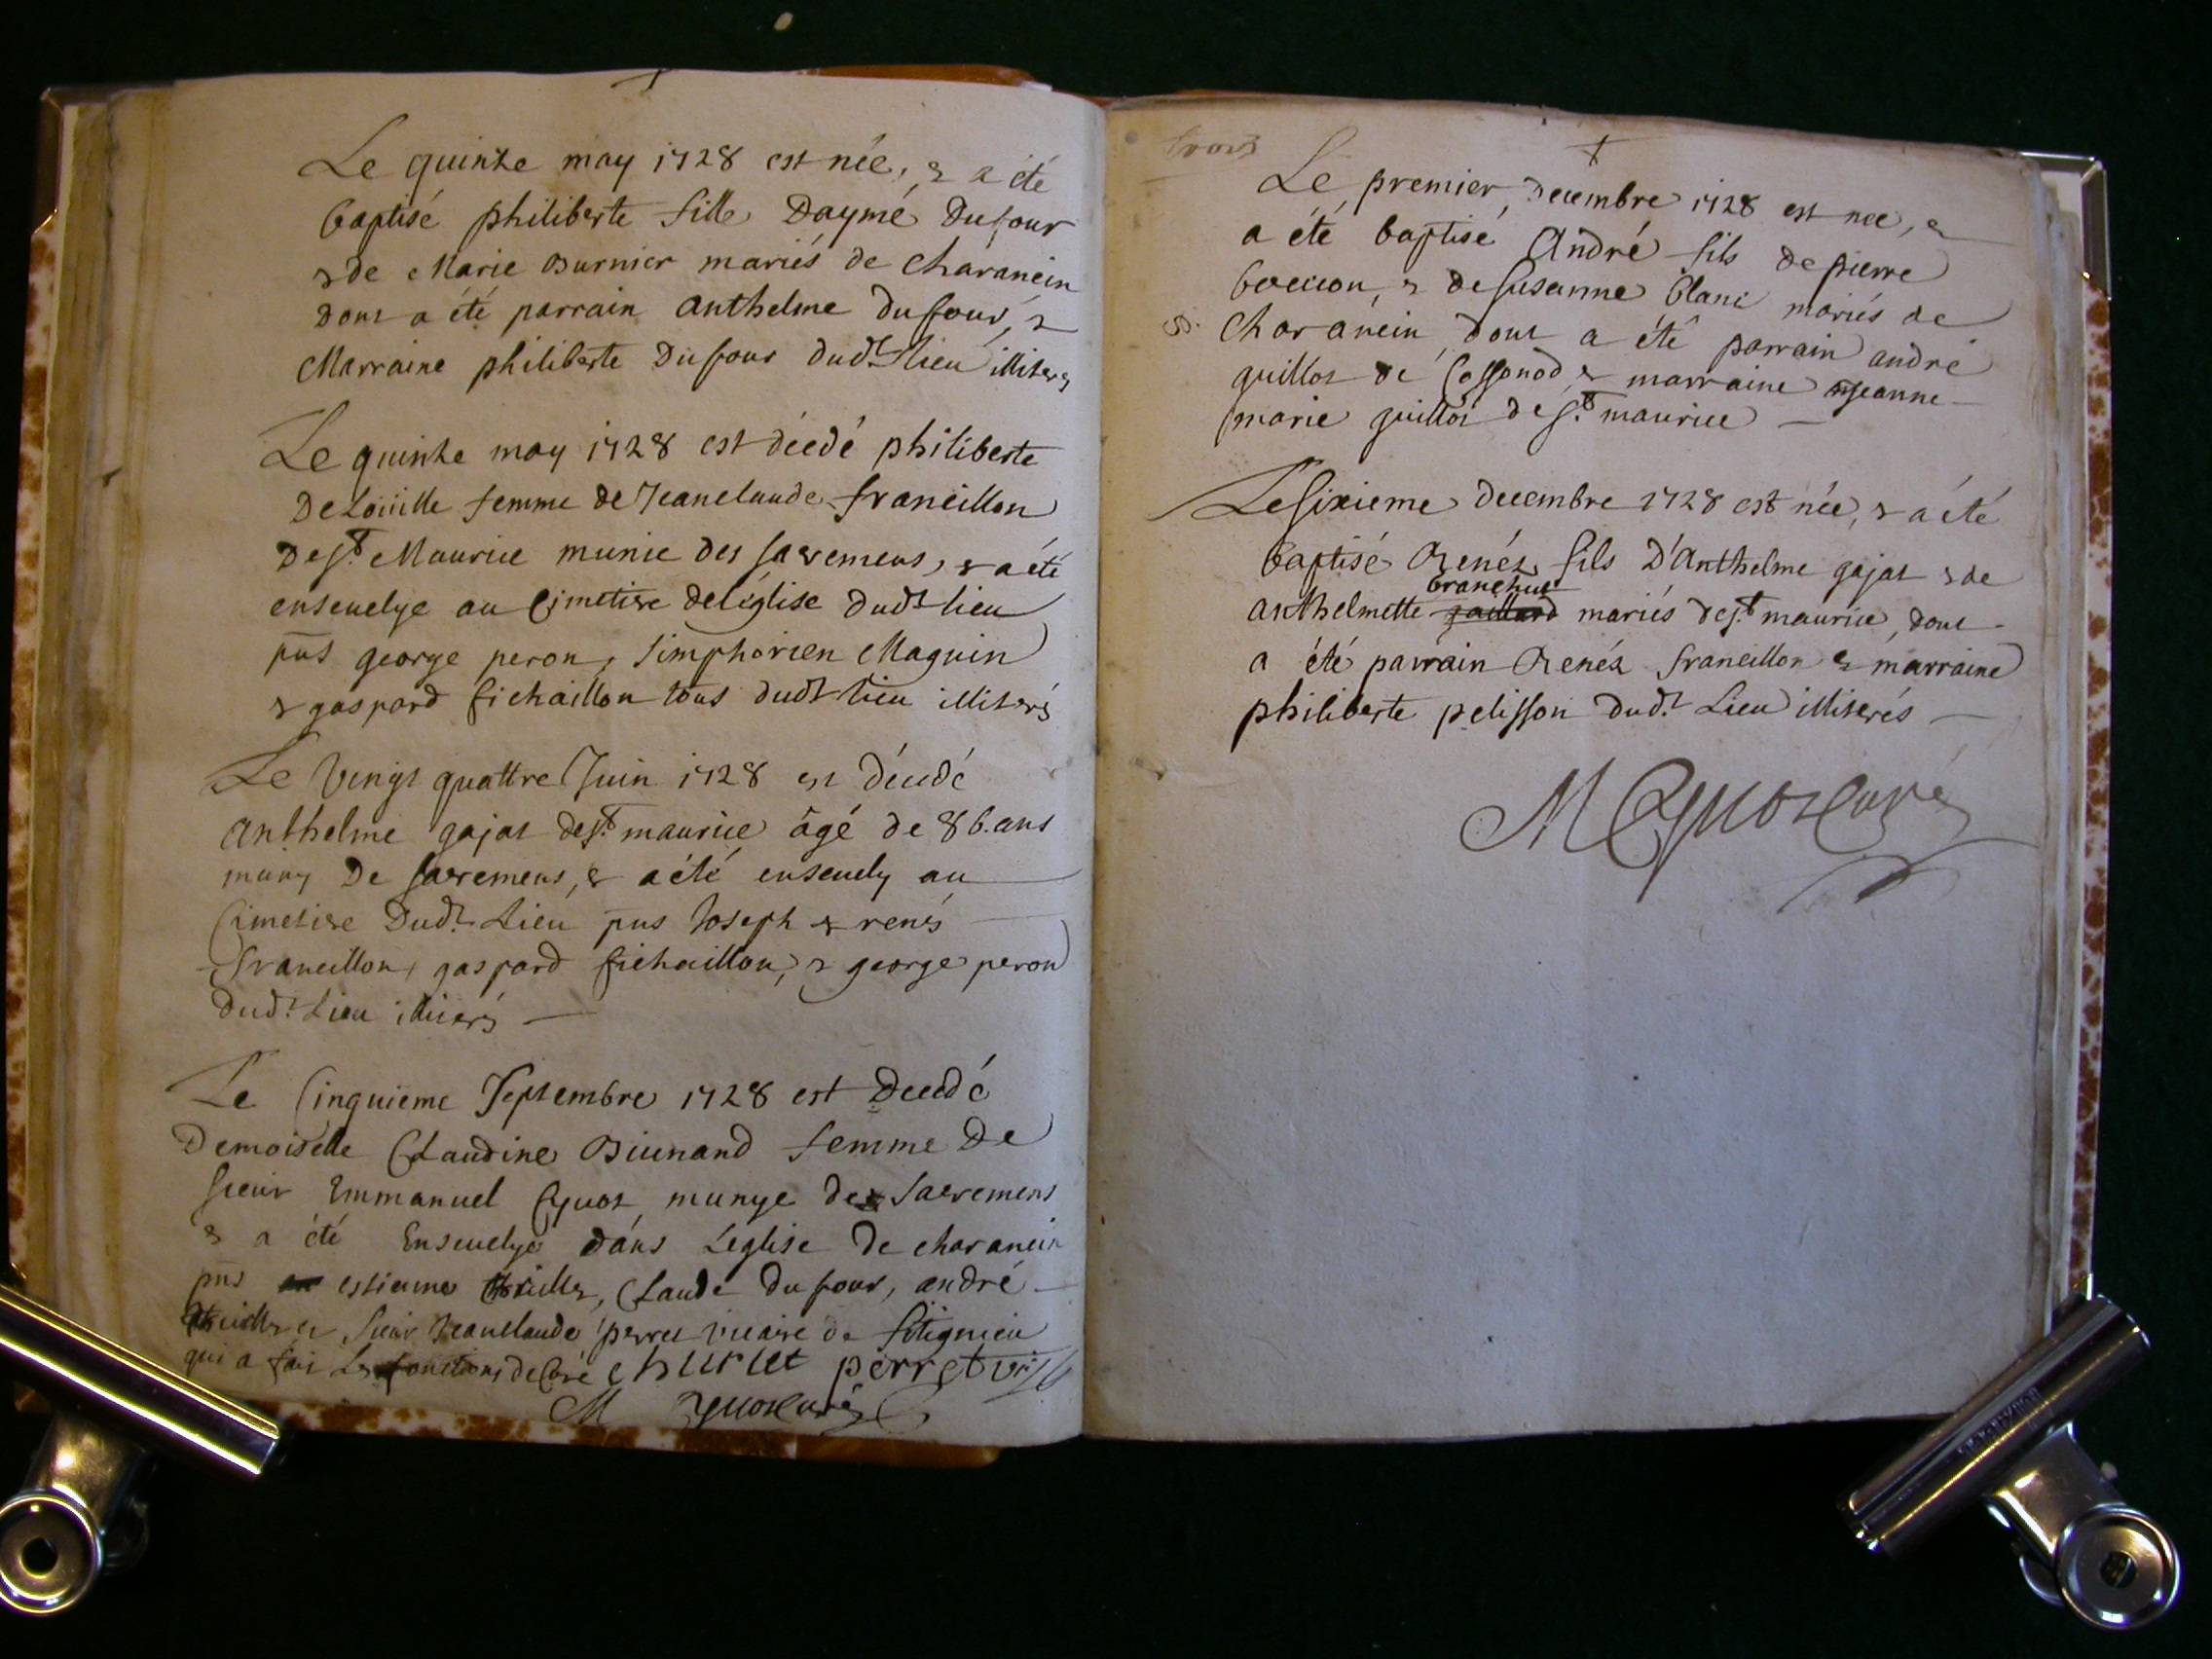 Le quinze may 1728 est née, & a été
baptisé philiberte fille Daymé Dufour
& de Marie Burnier mariés de charancin
dont a été parrain anthelme dufour, &
Marraine philiberte Dufour dudt lieu illiterés
Le quinze may 1728 est décedé philiberte
Delouille femme de Jeanclaude francillon
de st Maurice munie des sacremens, & a été
ensevelye au Cimetire de l'église dudt lieu
pns george peron, simphorien Maguin
& gaspard fichaillon tous dudt lieu illiterés
Le Vingt quattre Juin 1728 est décedé
anthelme gojat de st maurice âgé de 86. ans
muny De sacremens, & a été ensevely au
Cimetire Dudt Lieu pns Joseph & renés
francillon, gaspard fichaillon, & george peron
dudt Lieu illiterés
Le Cinquieme Septembre 1728 est Decedé
Demoiselle Claudine Biunand femme De
sieur Emmanuel Cyvot munye des sacremens
& a été Ensevelye dans L'eglise De charancin
pns estienne Claude Dufour, andré
& sieur Jeanclaude perret vicaire de fitignieu
qui a fait les fonctions de Curé churlet perret vic
M Cyvot curé
trois
Le premier Decembre 1728 est nee, &
a été baptisé André fils de pierre
boccon, & de susanne blanc mariés de
charancin dont a été parrain andré
guillot de Cossonod, & marraine jeanne
marie guillot de st maurice
Le sixieme decembre 1728 est née, & a été
baptisé Renés fils D'Anthelme gojat & de
branchut
anthelmette gaillard mariés de st maurice, dont
a été parrain Renés francillon & marraine
philiberte pelisson dudt Lieu illiterés
M Cyvot Curé